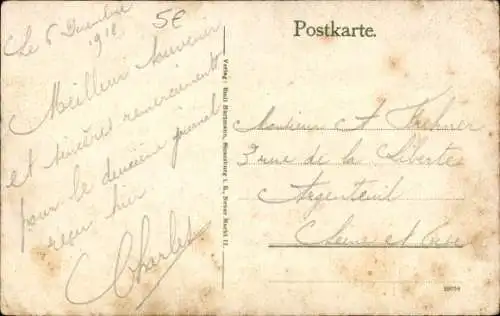 Le 6 Decembre
1918
5€
Meilleur souvenir
et sincères remerciements
pour le deuxième journal
reçu hier.
Charles
Verlag: Emil Hartmann, Strassburg i. E., Neuer Markt 12.
Postkarte.
Monsieur A
3 rue de la Liberte
Argenteuil
Seine et Oise